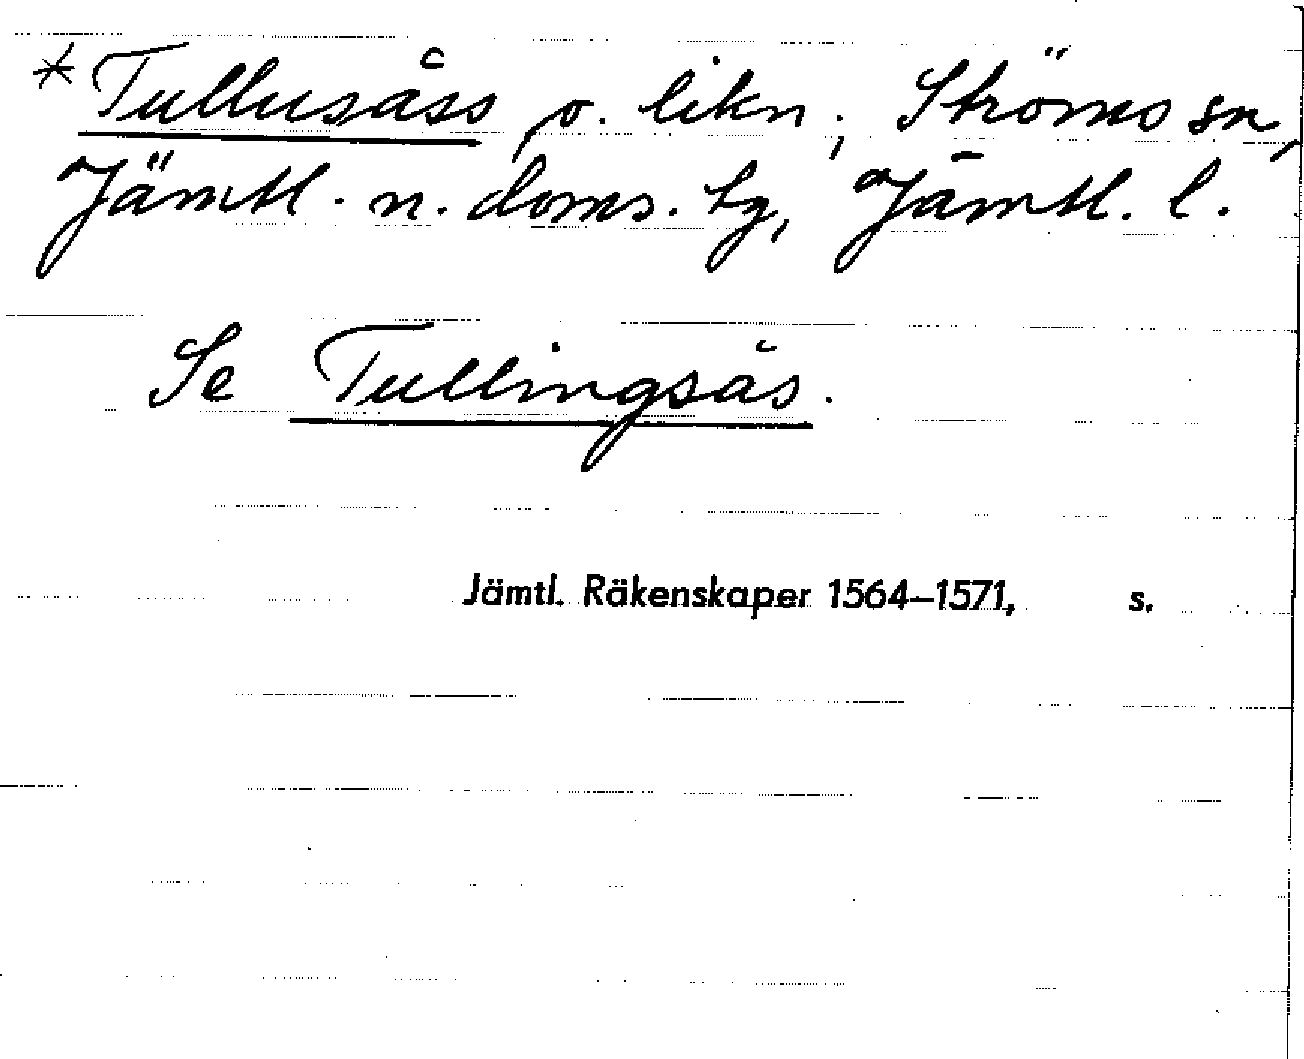 *Tullusåss o. likn., Ströms sn,
Jämtl. n. doms. tg, Jämtl. l.
Se Tullingsås.
Jämtl. Räkenskaper 1564–1571, s.